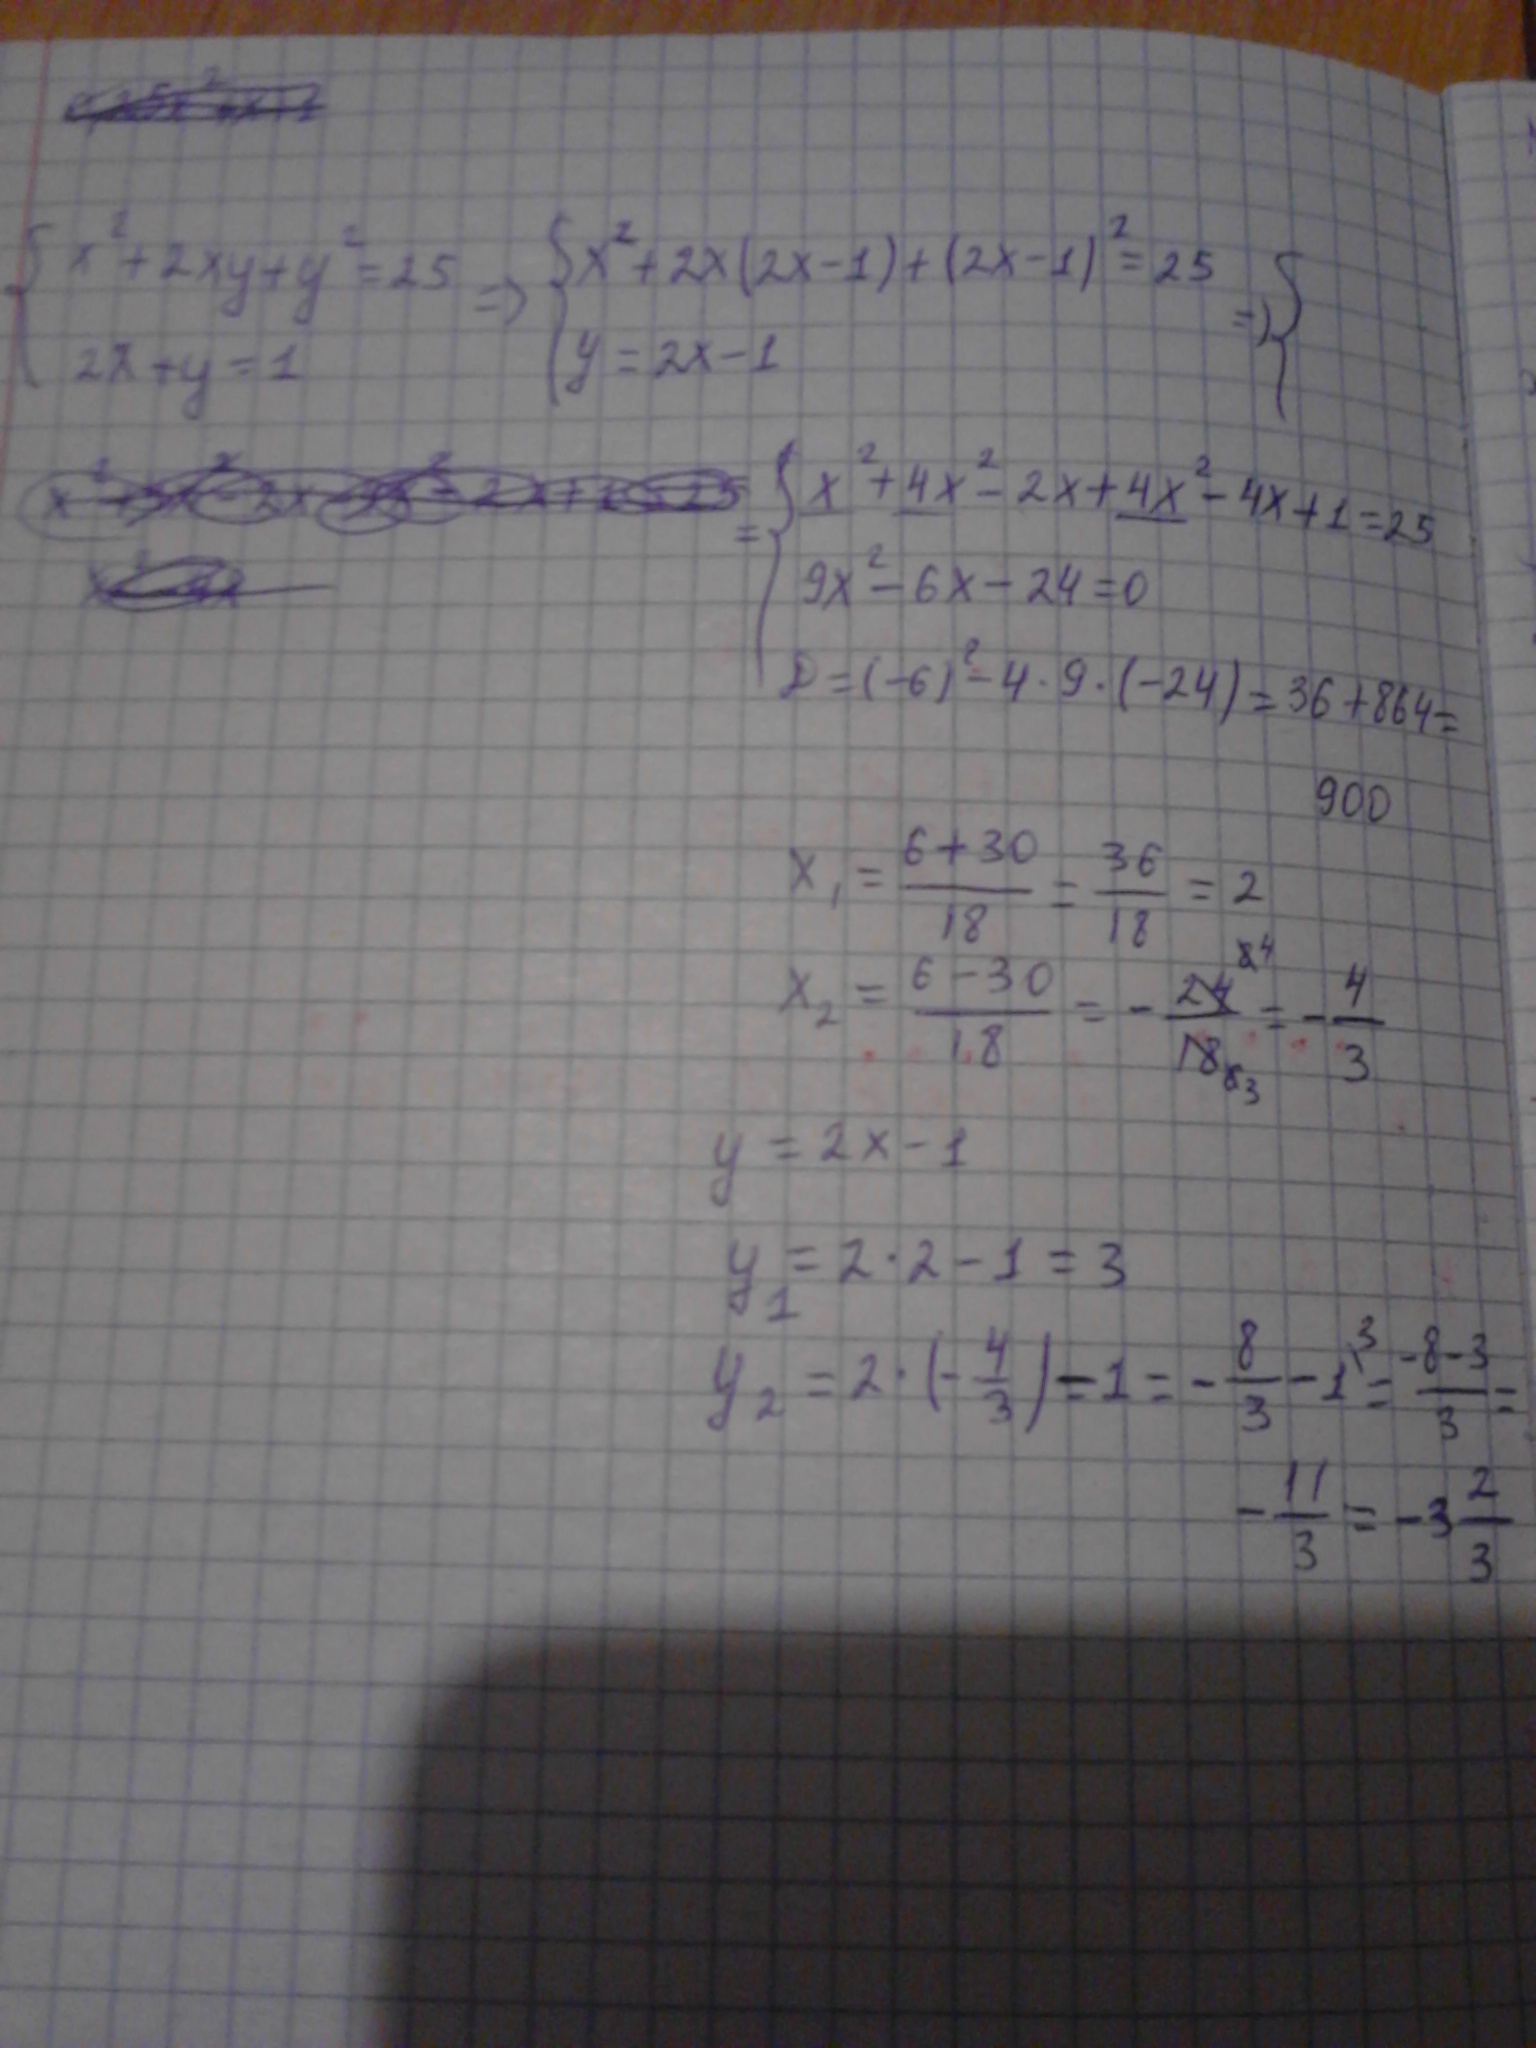 { x² + 2xy + y² = 25 => { x² + 2x(2x-1) + (2x-1)² = 25 => {
2x + y = 1 y = 2x - 1
= { x² + 4x² - 2x + 4x² - 4x + 1 = 25
9x² - 6x - 24 = 0
D = (-6)² - 4 · 9 · (-24) = 36 + 864 =
900
x₁ = (6+30)/18 = 36/18 = 2
x₂ = (6-30)/18 = - 24/18 = - 4/3
y = 2x - 1
y₁ = 2 · 2 - 1 = 3
y₂ = 2 · (- 4/3) - 1 = - 8/3 - 1 ³ = (-8-3)/3 =
- 11/3 = -3 2/3